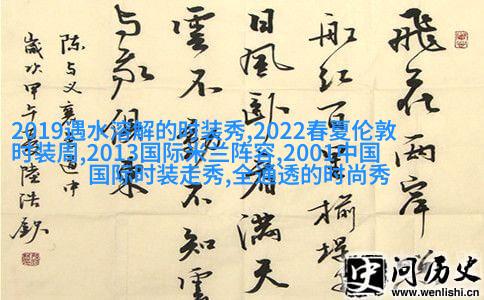 飛花兩岸
船紅百里榆堤
日風卧看滿天
雲不動不知雲
与我俱東
陳与义襄邑道中
歲次甲午夏陸浩
2019遇水溶解的时装秀,2022春夏伦敦
时装周,2013国际米兰阵容,2001中国
国际时装走秀,全通透的时尚秀
问历史
www.wenlishi.cn